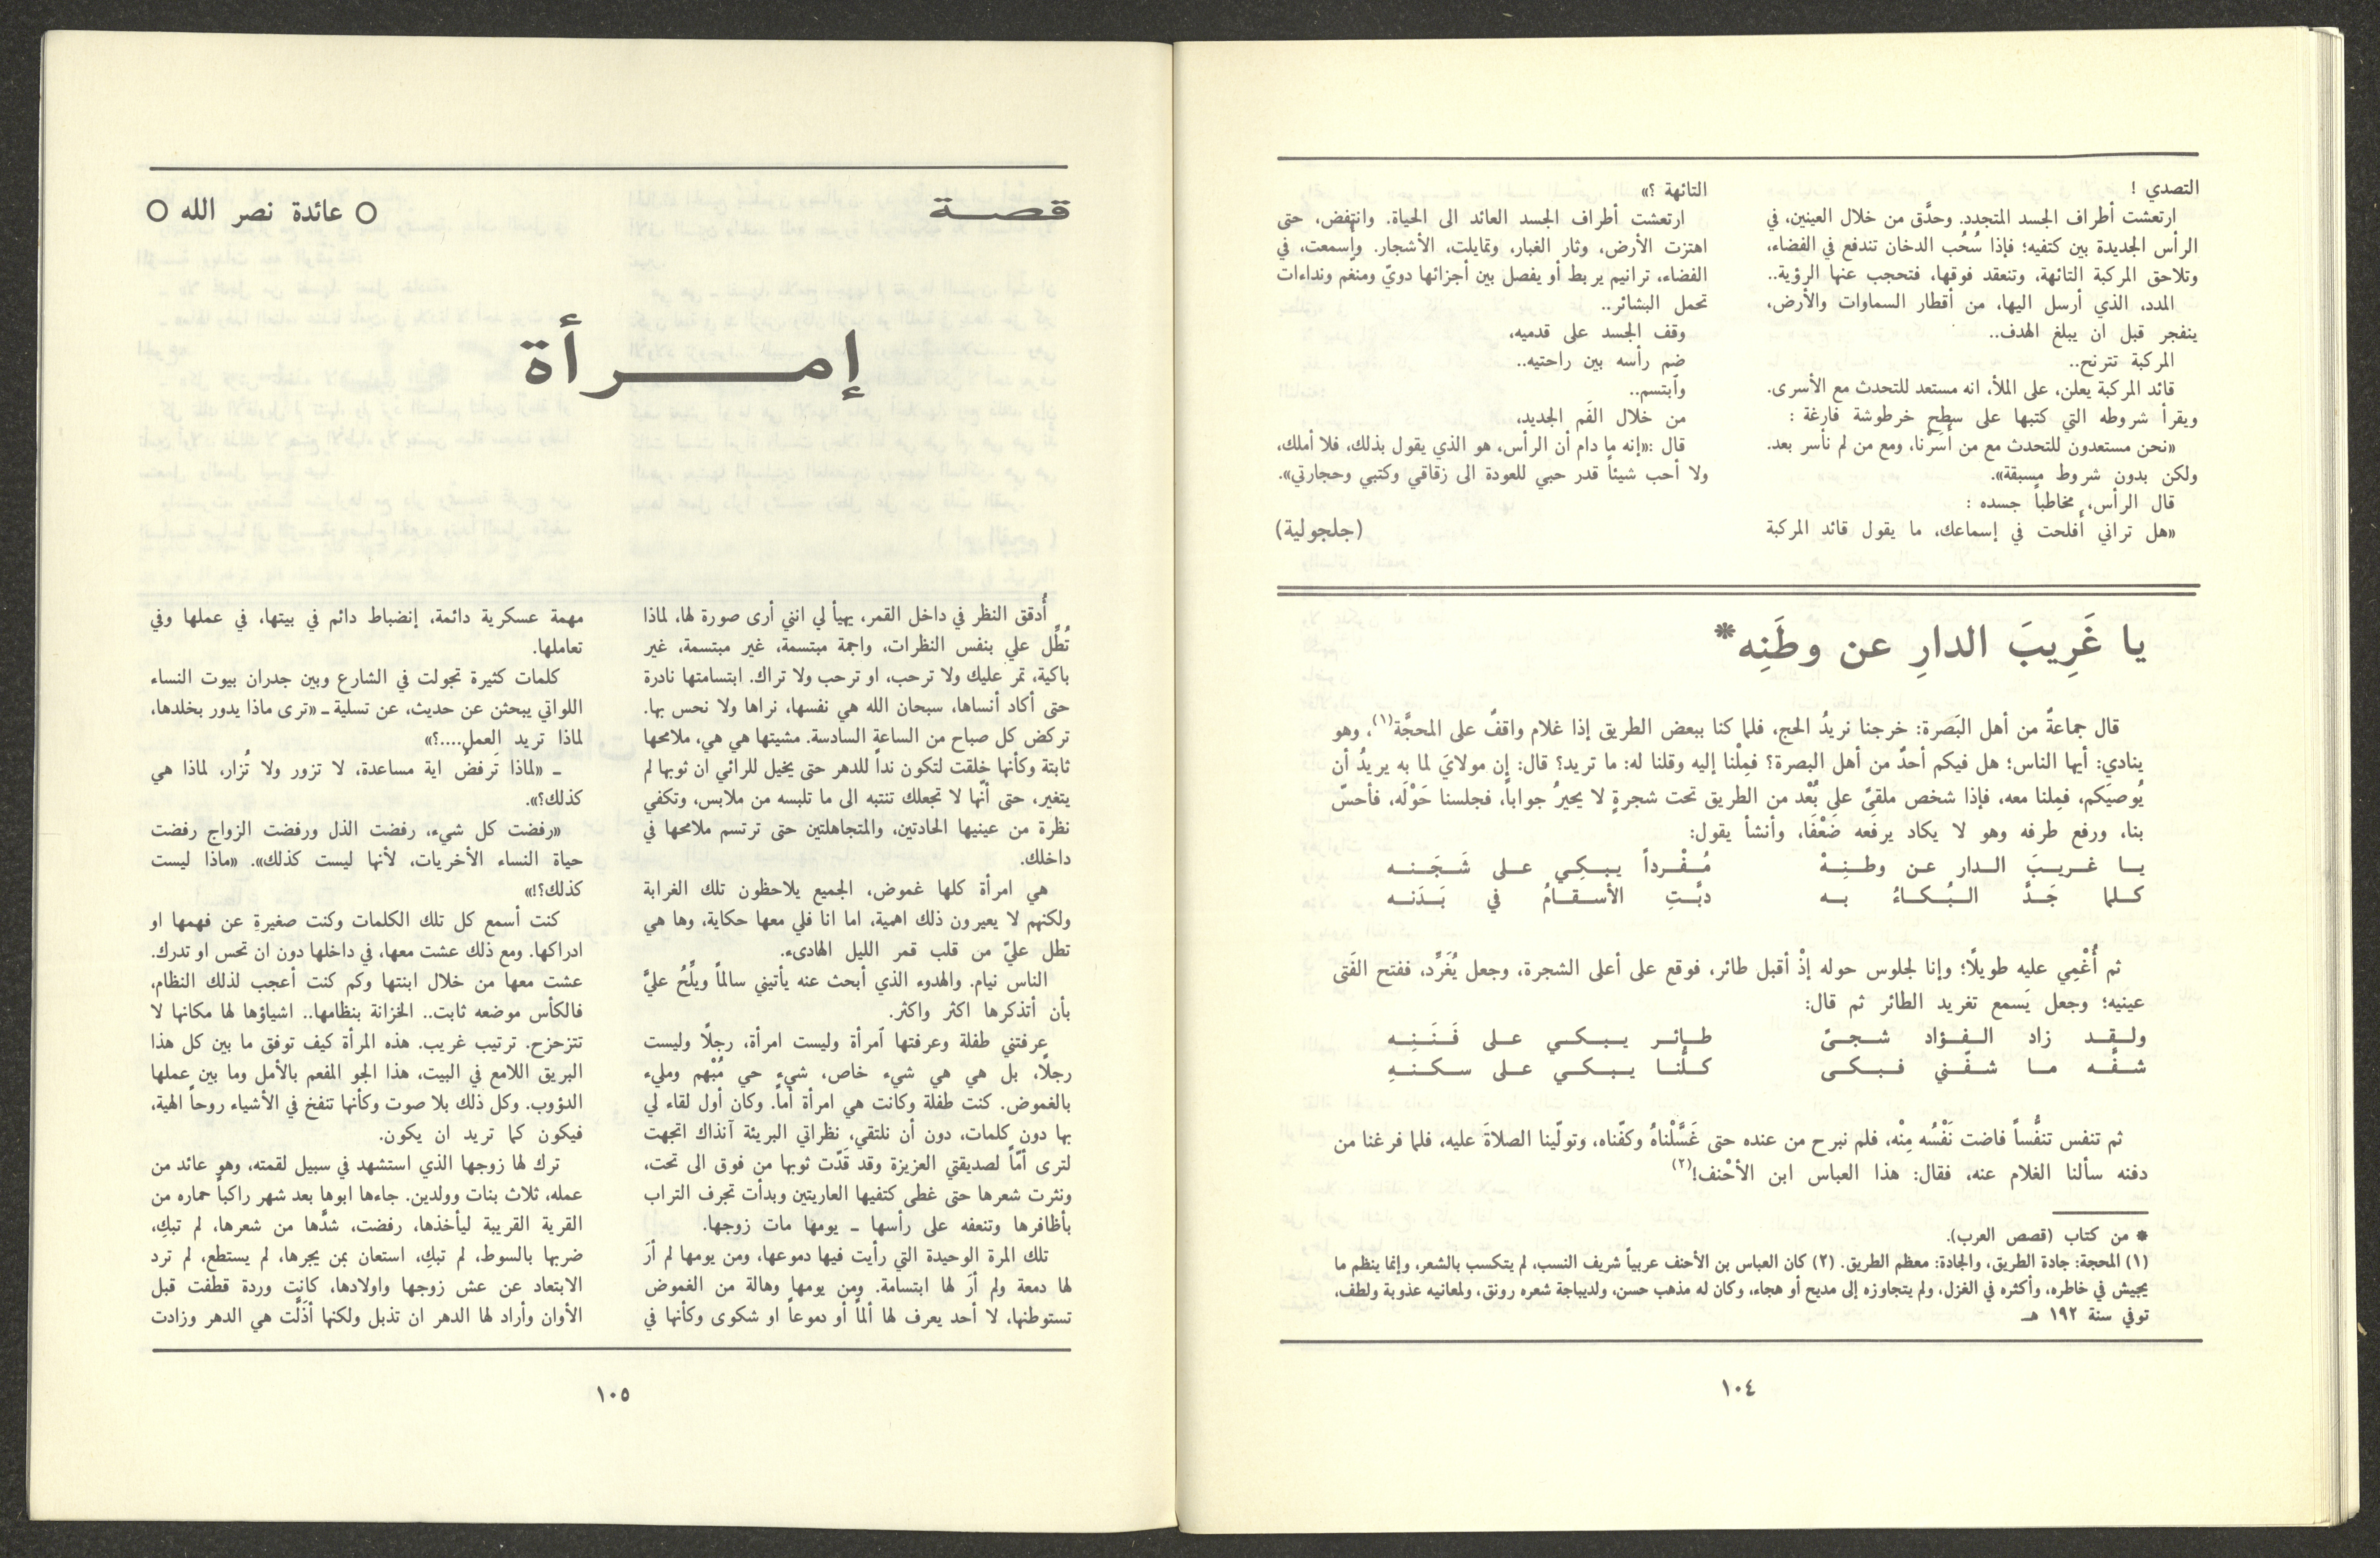 التصدي !
ارتعشت أطراف الجسد المتجدد. وحدَّق من خلال العينين، في
الرأس الجديدة بين كتفيه؛ فإذا سُحُب الدخان تندفع في الفضاء،
وتلاحق المركبة التائهة، وتنعقد فوقها، فتحجب عنها الرؤية..
المدد، الذي أرسل اليها، من أقطار السماوات والأرض،
ينفجر قبل ان يبلغ الهدف..
المركبة تترنح..
قائد المركبة يعلن، على الملأ، انه مستعد للتحدث مع الأسرى.
ويقرأ شروطه التي كتبها على سطح خرطوشة فارغة :
«نحن مستعدون للتحدث مع من أَسَرْنا، ومع من لم نأسر بعد.
ولكن بدون شروط مسبقة».
قال الرأس، مخاطباً جسده :
«هل تراني أفلحت في إسماعك، ما يقول قائد المركبة
التائهة ؟»
ارتعشت أطراف الجسد العائد الى الحياة. وانتفض، حتى
اهتزت الأرض، وثار الغبار، وتمايلت، الأشجار. وأسمعت، في
الفضاء، ترانيم يربط أو يفصل بين أجزائها دويّ ومنغم ونداءات
تحمل البشائر..
وقف الجسد على قدميه،
ضم رأسه بين راحتيه..
وأبتسم..
من خلال الفَم الجديد،
قال :«إنه ما دام أن الرأس، هو الذي يقول بذلك، فلا أملك،
ولا أحب شيئاً قدر حبي للعودة الى زقاقي وكتبي وحجارتي».
(جلجولية)
يا غَرِيبَ الدارِ عن وطَنِه*
قال جماعةٌ من أهل البَصرة: خرجنا نريدُ الحج، فلما كنا ببعض الطريق إذا غلام واقفٌ على المحجَّة(١)، وهو
ينادي: أيها الناس؛ هل فيكم أحدٌ من أهل البصرة؟ فمِلْنا إليه وقلنا له: ما تريد؟ قال: إن مولايَ لما به يريدُ أن
يُوصيَكم، فمِلنا معه، فإذا شخص ملقىً على بُعْد من الطريق تحت شجرةٍ لا يحيرُ جواباً، فجلسنا حَوْلَه، فأحسّ
بنا، ورفع طرفه وهو لا يكاد يرفَعه ضَعْفَا، وأنشأ يقول:
يا غريبَ الدار عن وطنِهْ مُفْرداً يبكِي على شَجَنه
كلما جَدَّ البُكاءُ به دبَّتِ الأسقامُ في بَدَنه
ثم أُغْمِي عليه طويلاً؛ وإنا لجلوس حوله إذْ أقبل طائر، فوقع على أعلى الشجرة، وجعل يُغَرِّد، ففتح الفَتى
عينيه؛ وجعل يَسمع تغريد الطائر ثم قال:
ولقد زاد الفؤاد شجىً طائر يبكي على فَنَنِه
شفَّه ما شفّني فبكى كلّنا يبكي على سكنهِ
ثم تنفس تنفُّساً فاضت نَفْسُه مِنْه، فلم نبرح من عنده حتى غَسَّلْناهُ وكفّناه، وتولّينا الصلاةَ عليه، فلما فرغنا من
دفنه سألنا الغلام عنه، فقال: هذا العباس ابن الأحْنف!(٢)
* من كتاب (قصص العرب).
(١) المحجة: جادة الطريق، والجادة: معظم الطريق. (٢) كان العباس بن الأحنف عربياً شريف النسب، لم يتكسب بالشعر، وإنما ينظم ما
يجيش في خاطره، وأكثره في الغزل، ولم يتجاوزه إلى مديح أو هجاء، وكان له مذهب حسن، ولديباجة شعره رونق، ولمعانيه عذوبة ولطف،
توفي سنة ١٩٢ هـ
١٠٤
قصة
○ عائدة نصر الله ○
إمرأة
أُدقق النظر في داخل القمر، يهيأ لي انني أرى صورة لها، لماذا
تُطِّل علي بنفس النظرات، واجمة مبتسمة، غير مبتسمة، غير
باكية، تمر عليك ولا ترحب، او ترحب ولا تراك. ابتسامتها نادرة
حتى أكاد أنساها، سبحان الله هي نفسها، نراها ولا نحس بها.
تركض كل صباح من الساعة السادسة. مشيتها هي هي، ملامحها
ثابتة وكأنها خلقت لتكون نداً للدهر حتى يخيل للرائي ان ثوبها لم
يتغير، حتى أنّها لا تجعلك تنتبه الى ما تلبسه من ملابس، وتكفي
نظرة من عينيها الحادتين، والمتجاهلتين حتى ترتسم ملامحها في
داخلك.
هي امرأة كلها غموض، الجميع يلاحظون تلك الغرابة
ولكنهم لا يعيرون ذلك اهمية، اما انا فلي معها حكاية، وها هي
تطل عليّ من قلب قمر الليل الهادىء.
الناس نيام. والهدوء الذي أبحث عنه يأتيني سالماً ويلّحُ عليَّ
بأن أتذكرها اكثر واكثر.
عرفتني طفلة وعرفتها أمرأة وليست امرأة، رجلًا وليست
رجلًا، بل هي هي شيء خاص، شيء حي مُبْهم ومليء
بالغموض. كنت طفلة وكانت هي امرأة أماً. وكان أول لقاء لي
بها دون كلمات، دون أن نلتقي، نظراتي البريئة آنذاك اتجهت
لترى أمّاً لصديقتي العزيزة وقد قَدّت ثوبها من فوق الى تحت،
ونثرت شعرها حتى غطى كتفيها العاريتين وبدأت تجرف التراب
بأظافرها وتنعفه على رأسها ـ يومها مات زوجها.
تلك المرة الوحيدة التي رأيت فيها دموعها، ومن يومها لم أرَ
لها دمعة ولم أرَ لها ابتسامة. ومن يومها وهالة من الغموض
تستوطنها، لا أحد يعرف لها ألماً أو دموعاً او شكوى وكأنها في
مهمة عسكرية دائمة، إنضباط دائم في بيتها، في عملها وفي
تعاملها.
كلمات كثيرة تجولت في الشارع وبين جدران بيوت النساء
اللواتي يبحثن عن حديث، عن تسلية ـ «ترى ماذا يدور بخلدها،
لماذا تريد العمل....؟»
ـ «لماذا تَرفضُ اية مساعدة، لا تزور ولا تُزار، لماذا هي
كذلك؟».
«رفضت كل شيء، رفضت الذل ورفضت الزواج رفضت
حياة النساء الأخريات، لأنها ليست كذلك». «ماذا ليست
كذلك؟!»
كنت أسمع كل تلك الكلمات وكنت صغيرة عن فهمها او
ادراكها. ومع ذلك عشت معها، في داخلها دون ان تحس او تدرك.
عشت معها من خلال ابنتها وكم كنت أعجب لذلك النظام،
فالكأس موضعه ثابت.. الخزانة بنظامها.. اشياؤها لها مكانها لا
تتزحزح. ترتيب غريب. هذه المرأة كيف توفق ما بين كل هذا
البريق اللامع في البيت، هذا الجو المفعم بالأمل وما بين عملها
الدؤوب. وكل ذلك بلا صوت وكأنها تنفخ في الأشياء روحاً الهية،
فيكون كما تريد ان يكون.
ترك لها زوجها الذي استشهد في سبيل لقمته، وهو عائد من
عمله، ثلاث بنات وولدين. جاءها ابوها بعد شهر راكباً حماره من
القرية القريبة ليأخذها، رفضت، شدَّها من شعرها، لم تبكِ،
ضربها بالسوط، لم تبكِ، استعان بمن يجرها، لم يستطع، لم ترد
الابتعاد عن عش زوجها واولادها، كانت وردة قطفت قبل
الأوان وأراد لها الدهر ان تذبل ولكنها أذَلَّت هي الدهر وزادت
١٠٥